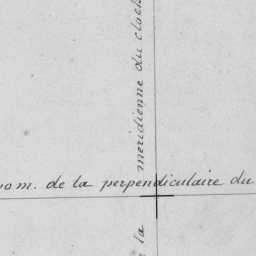 om. de la perpendiculaire du
la méridienne du